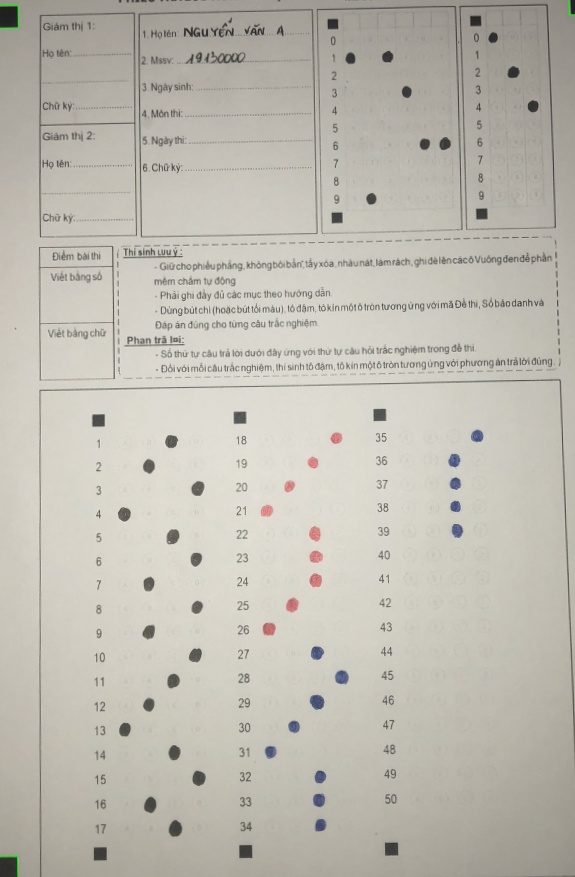 Giám thị 1:
Họ tên:
Chữ ký:
Giám thị 2:
Họ tên:
Chữ ký:
1. Họ tên: NGUYỄN VĂN A
2. Mssv: 19130000
3. Ngày sinh:
4. Môn thi:
5. Ngày thi:
6. Chữ ký:
0
1
2
3
4
5
6
7
8
9
0
1
2
3
4
5
6
7
8
9
Điểm bài thi
Viết bằng số
Viết bằng chữ
Thí sinh lưu ý:
- Giữ cho phiếu phẳng, không bôi bẩn, tẩy xóa, nhàu nát, làm rách, ghi đè lên các ô Vuông đen để phần
mềm chấm tự động
- Phải ghi đầy đủ các mục theo hướng dẫn.
- Dùng bút chì (hoặc bút tối màu), tô đậm, tô kín một ô tròn tương ứng với mã Đề thi, Số báo danh và
Đáp án đúng cho từng câu trắc nghiệm.
Phần trả lời:
- Số thứ tự câu trả lời dưới đây ứng với thứ tự câu hỏi trắc nghiệm trong đề thi.
- Đối với mỗi câu trắc nghiệm, thí sinh tô đậm, tô kín một ô tròn tương ứng với phương án trả lời đúng.
1
2
3
4
5
6
7
8
9
10
11
12
13
14
15
16
17
18
19
20
21
22
23
24
25
26
27
28
29
30
31
32
33
34
35
36
37
38
39
40
41
42
43
44
45
46
47
48
49
50